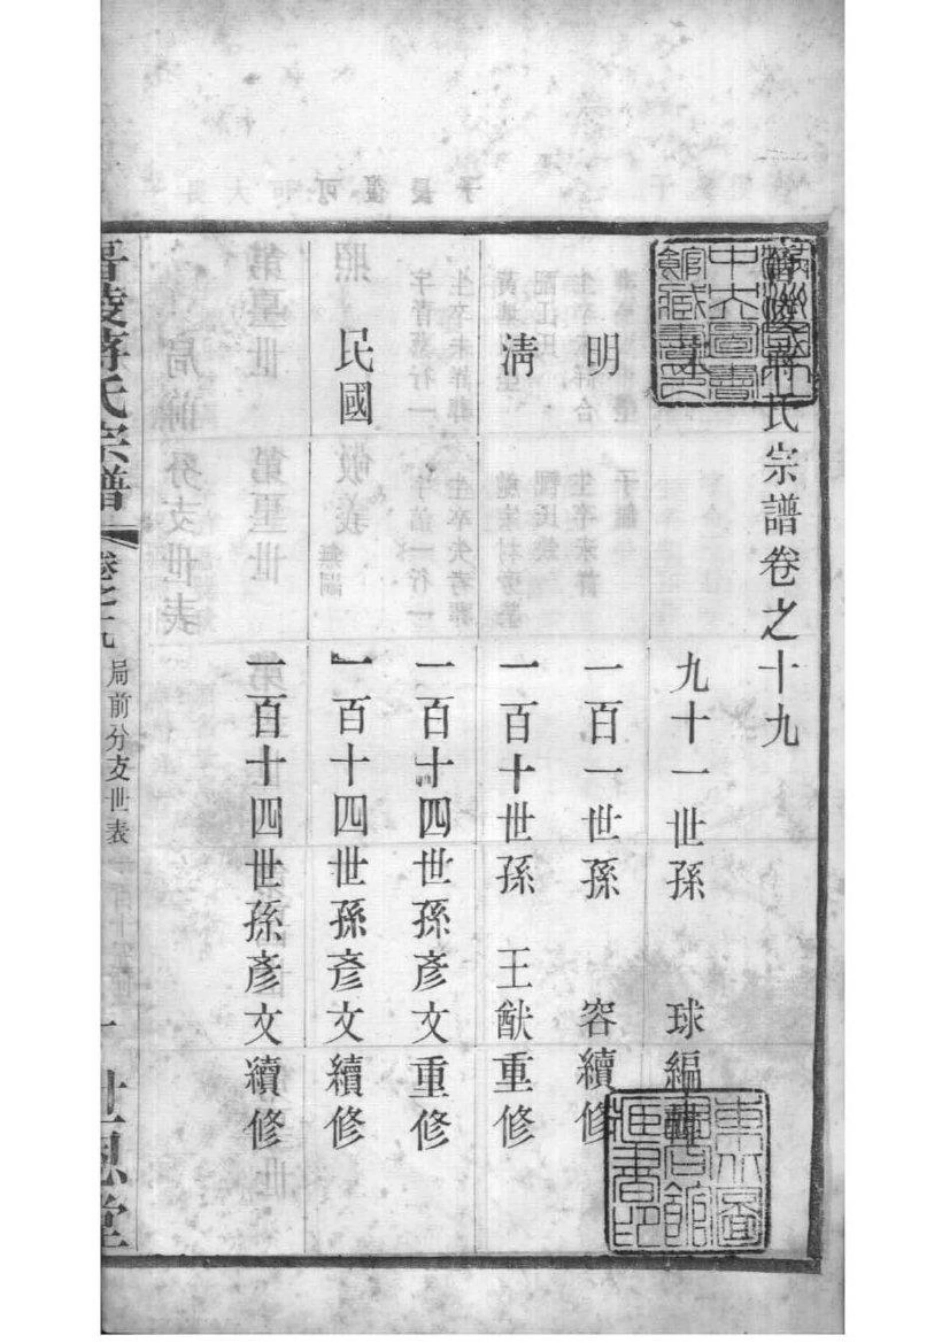 晉陵蔣氏宗譜卷之十九
九十一世孫 球編輯
明 一百一世孫 容續修
清 一百十世孫 王猷重修
一百十四世孫彥文重修
民國 一百十四世孫彥文續修
一百十四世孫彥文續修
晉陵蔣氏宗譜 卷之十九 局前分支世表 一 世恩堂